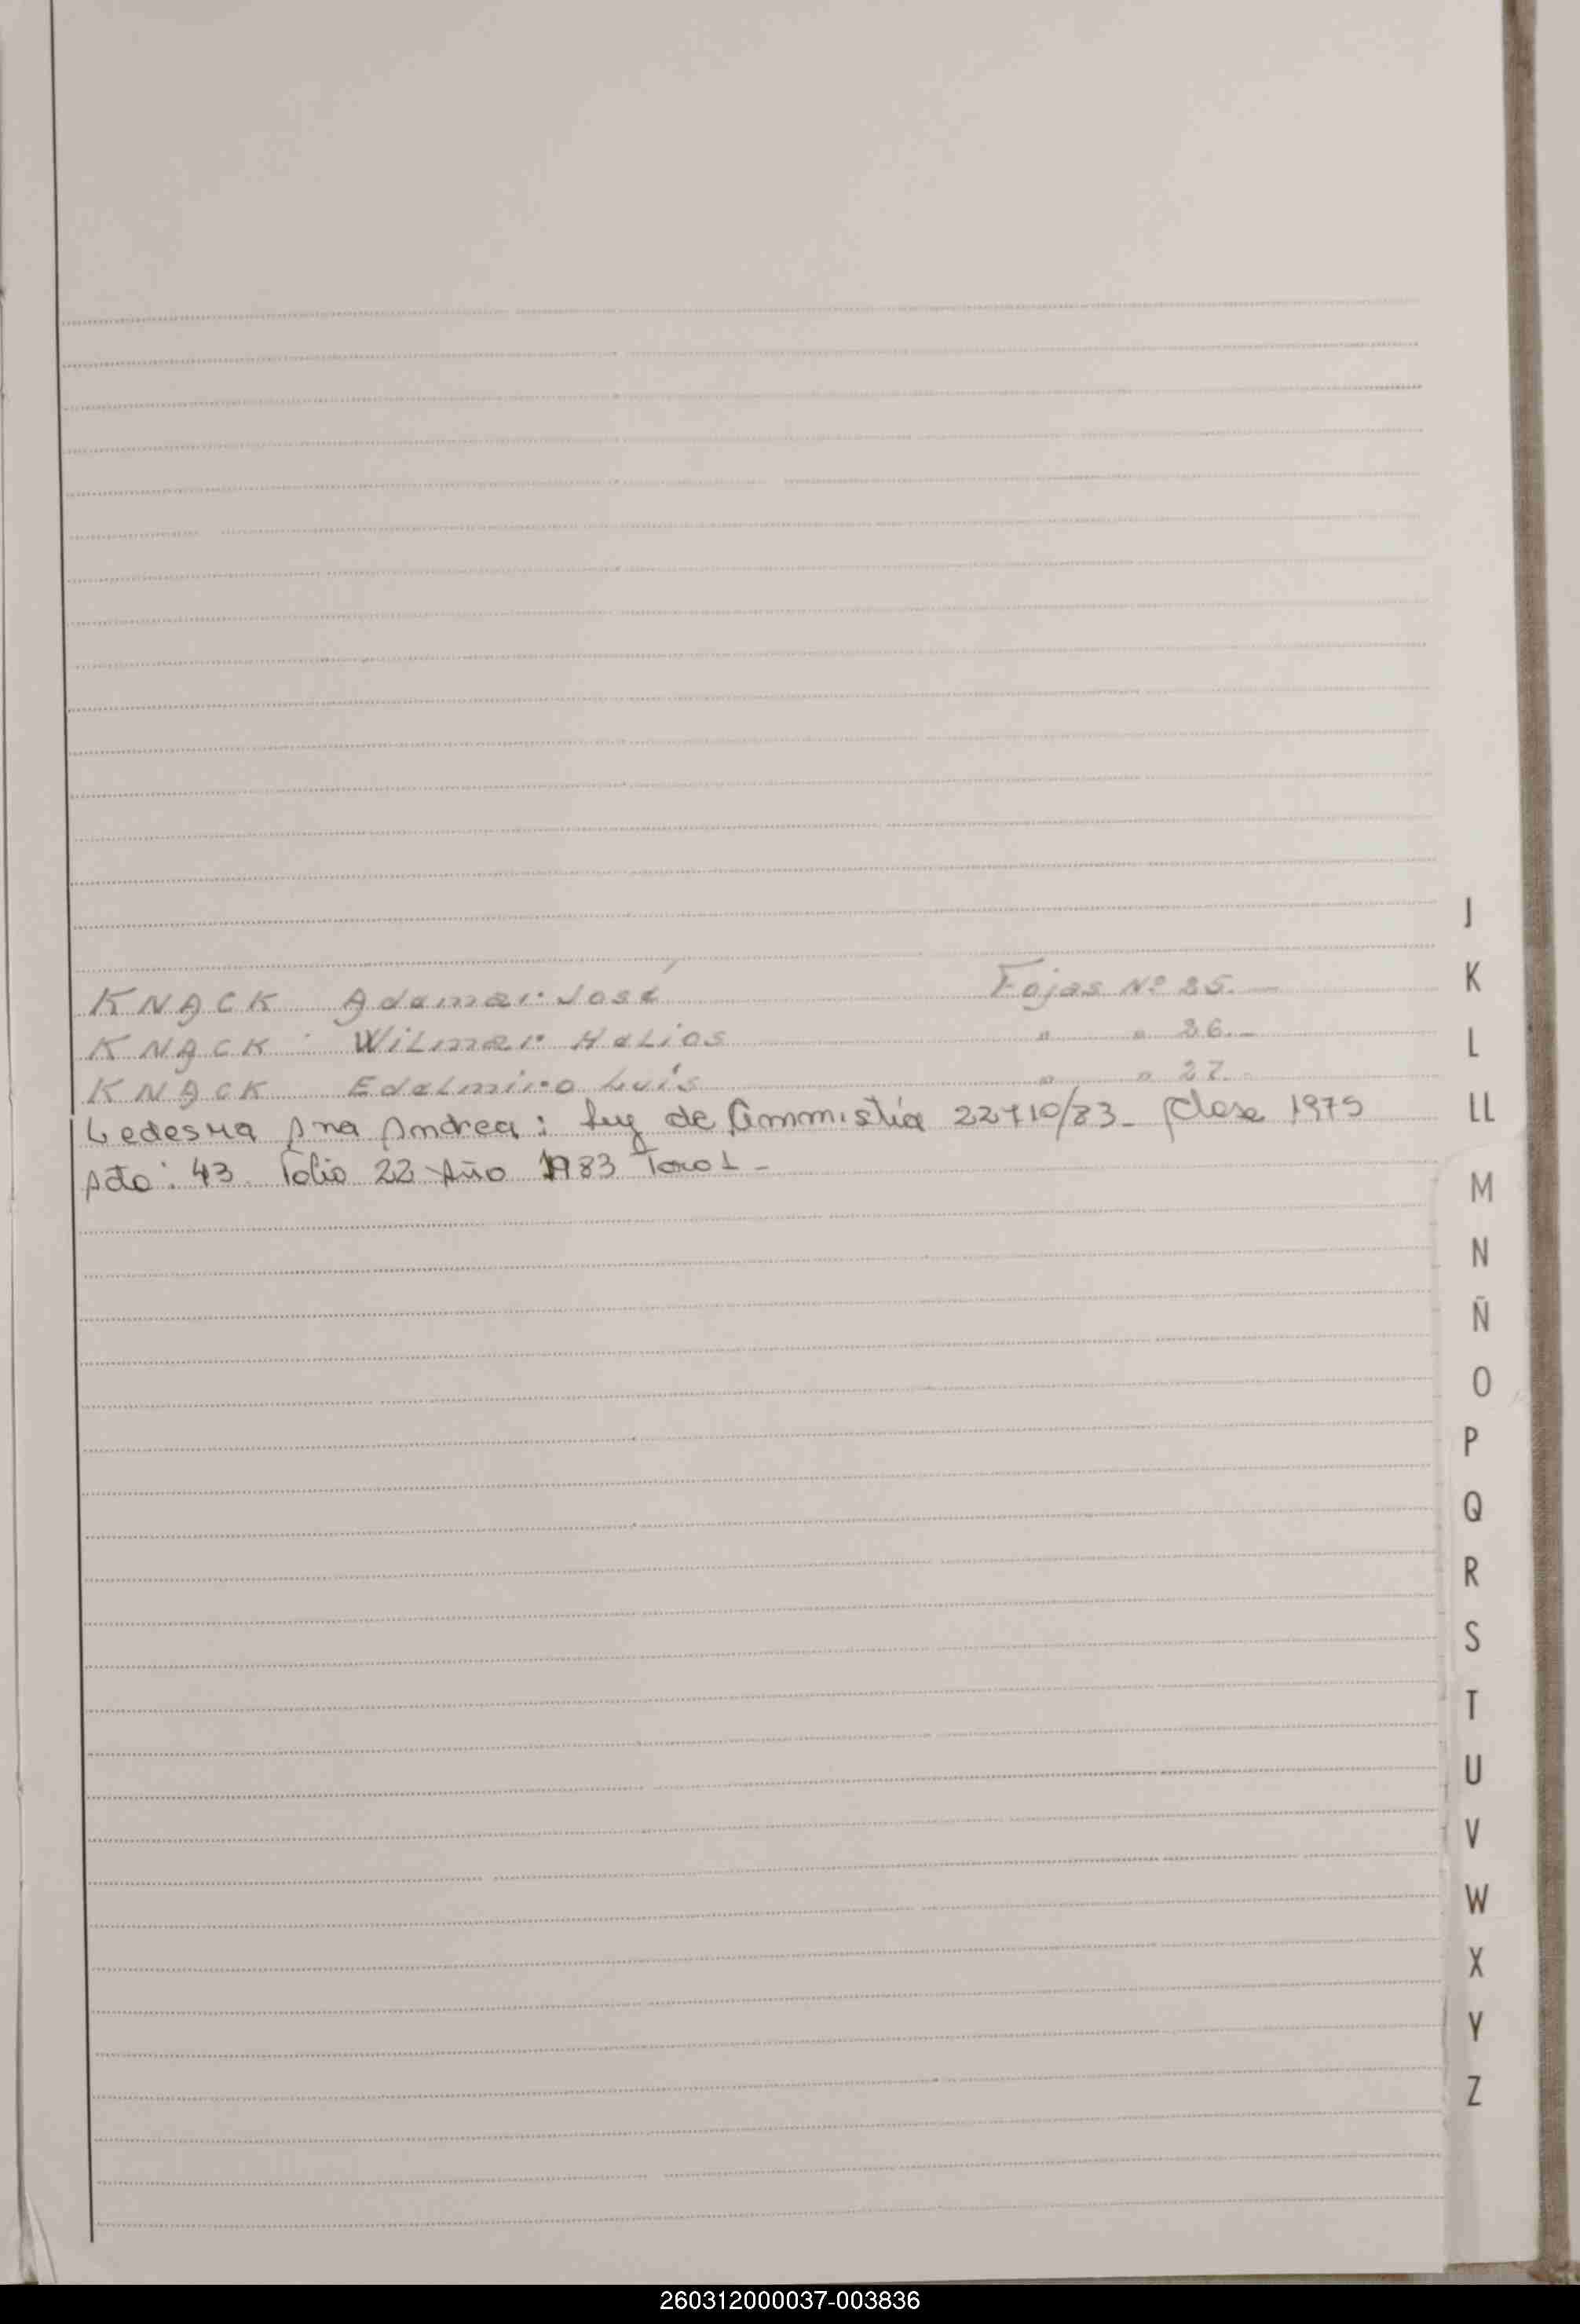 KNACK Adamar José Fojas Nº 25.-
KNACK Wilmar Helios " " 26.-
KNACK Edelmiro Luís " " 27.-
Ledesma Ana Andrea: Ley de Ammistía 22710/83- Clase 1975
Acta: 43 Folio 22 Año 1983 Tomo 1 -
J
K
L
LL
M
N
Ñ
O
P
Q
R
S
T
U
V
W
X
Y
Z
260312000037-003836